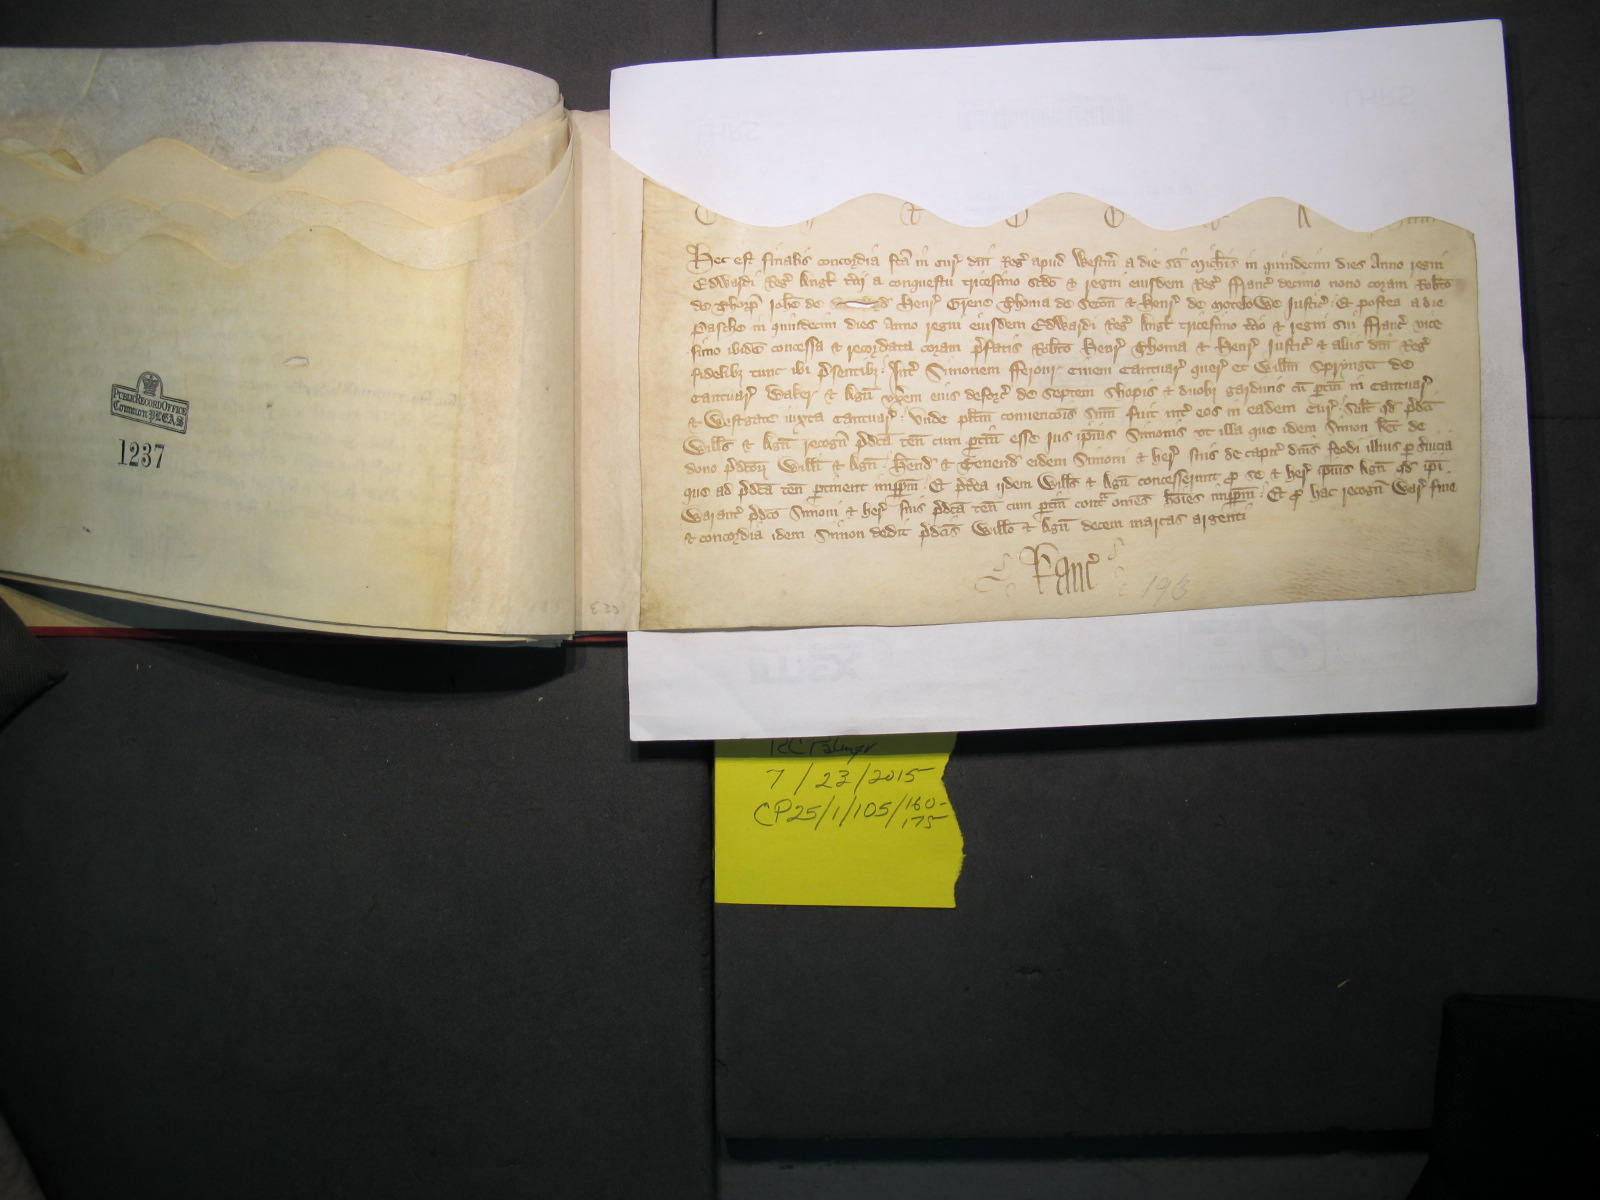 Hec est finalis concordia fc̄a in cur̉ dn̄i Reg̉ apud Westm̉ a die sc̄i Mich̄is in quindecim dies Anno regni
Edwardi Reg̉ Angl̉ t̉cii a conquestu tricesimo sc̄do & regni eiusdem Reg̉ Franc̉ decimo nono coram Rob̄to
de Thorp̉ Joh̄e de Henr̉ Grene Thoma de Seton̄ & Henr̉ de Motelowe Justic̉ Et postea a die
Pasche in quindecim dies Anno regni eiusdem Edwardi Reg̉ Angl̉ tricesimo t̉cio & regni sui Franc̉ vice
simo ibid̄ concessa & recordata coram p̉fatis Rob̄to Henr̉ Thoma & Henr̉ Justic̉ & aliis dn̄i Reg̉
fidelibȝ tunc ibi p̉sentibȝ Int̉ Simonem Ferour Ciuem Cantuar̉ quer̉ et Will̄m Sprynget de
Cantuar̉ Waker & Agn̄ vx̉em eius deforc̉ de septem shopis & duobȝ gardinis cū ptin̄ in Cantuar̉
& Westgate iuxta Cantuar̉ Vnde pl̄itum conuencōis sum̄ fuit int̉ eos in eadem Cur̉ Scil̄t qd̄ p̉dc̄i
Will̄s & Agn̄ recogn̄ p̉dc̄a ten̄ cum ptin̄ esse ius ip̄ius Simonis vt illa que idem Simon h̄et de
dono p̉dc̄orȝ Will̄i & Agn̄ Hend̄ & Tenend̄ eidem Simoni & her̉ suis de capit̉ dn̄is feodi illius p̱ s̉uicia
que ad p̉dc̄a ten̄ ptinent imp̄pm̄ Et p̉t̉ea iidem Will̄s & Agn̄ concesserunt p̱ se & her̉ ip̄ius Agn̄ qd̄ ip̄i
Warant̉ p̉dc̄o Simoni & her̉ suis p̉dc̄a ten̄ cum ptin̄ cont̉ om̄es ho̅ies imp̄pm̄ Et p̱ hac recogn̄ War̉ fine
& concordia idem Simon dedit p̉dc̄is Will̄o & Agn̄ decem marcas argenti
Kanc̉
193
PUBLIC RECORD OFFICE
Common PLEAS
1237
RC Palmer
7/23/2015
CP25/1/105/160-
175